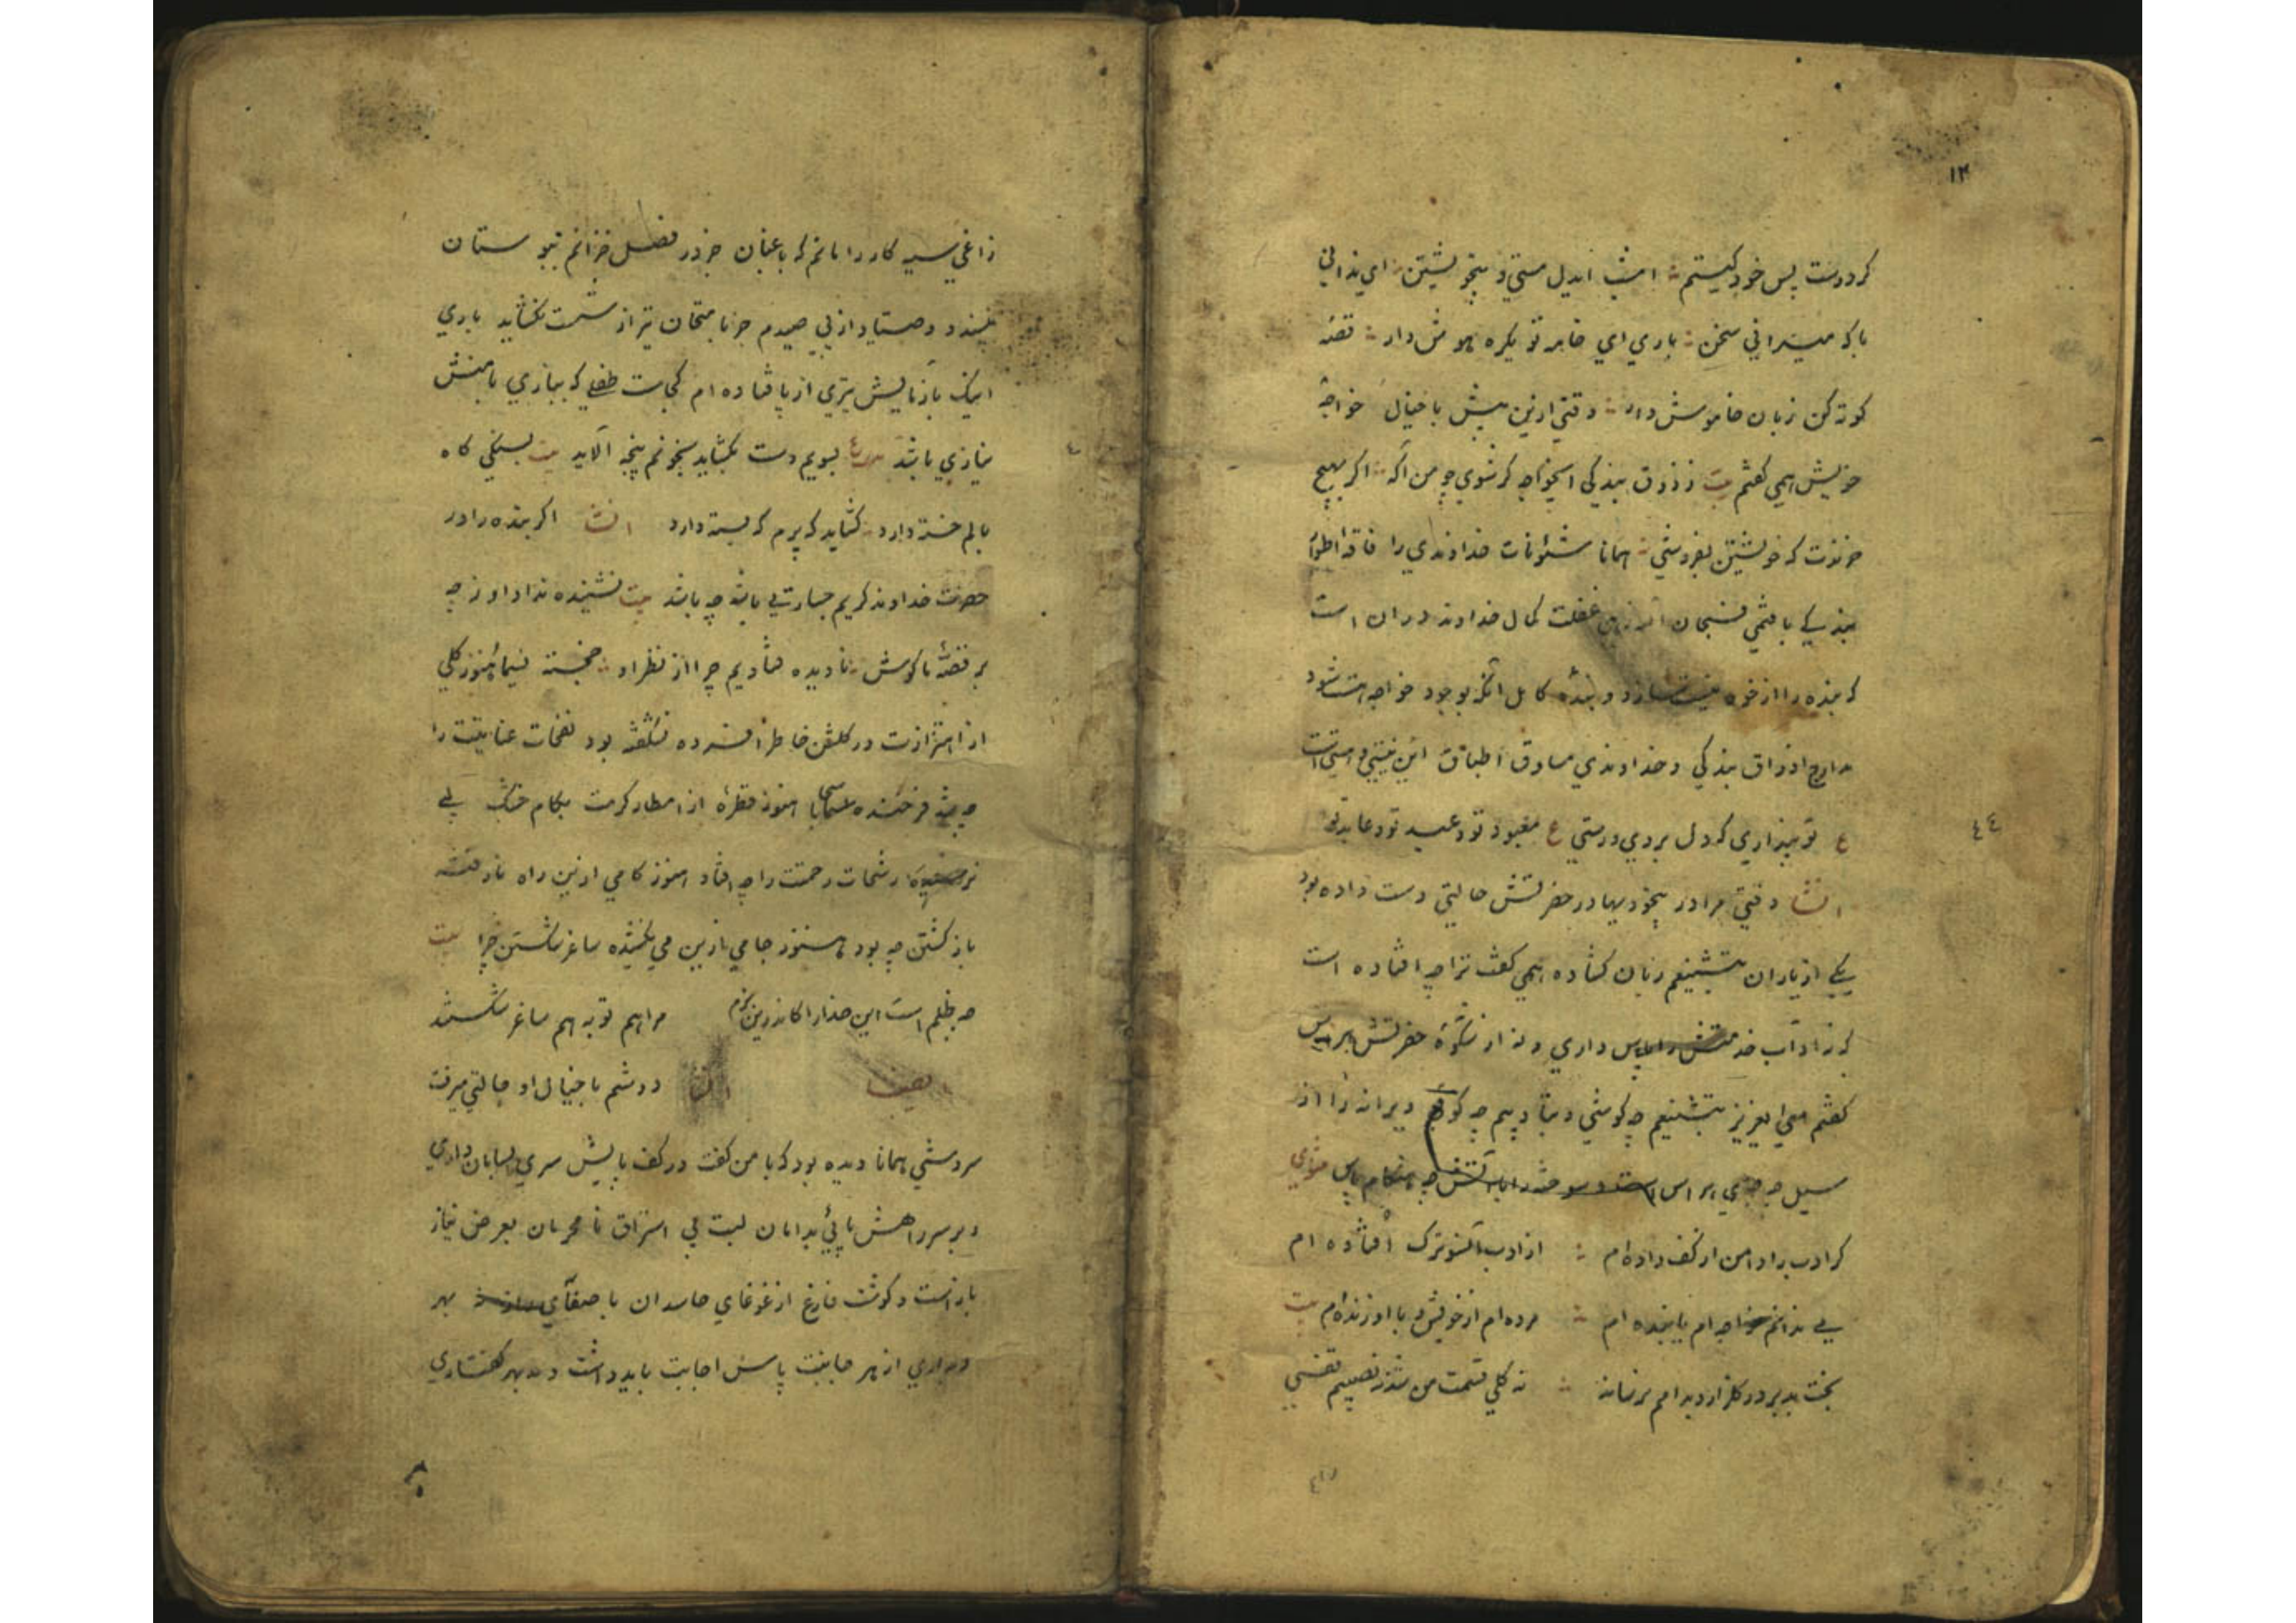 ۱۳
کر دوست پس خود کیستم امشب ایدل مستی و بیخویشتن ای ندانی
با که میرانی سخن باری ای خامه تو یکره هوش دار قصه
کوته کن زبان خاموش دار وقتی ازین پیش با خیال خواجه
خویش همی کفتم بیت ز ذوق بندکی ایخواجه کر شوی چو من آکه اکر بهیچ
خرندت که خویشتن بفروشی همانا شئونات خداوندی را
بندکی با غفلت کمال خداوند در ان است
که بنده را از خود نیست سازد و بنده کامل انکه بوجود خواجه هست شود
مدارج اذواق بندکی و خداوندی مساوق اطباق این نیستی و هستی است
ع تو پنداری که دل بردی و رستی ع معبود تو و عبد تو و عابد تو
ایضا وقتی مرا در بیخودیها در حضرتش حالتی دست داده بود
یکی از یاران بتشنیعم زبان کشاده همی کفت ترا چه افتاده است
که نه آداب خدمتش را پاس داری و نه از شکوه حضرتش هراس
کفتم هی ایعزیز بتشنیعم چه کوشی و بتادیبم چه کوئی ویرانه را از
سیل چه هراس است و سوخته را با آتش چه هنکام پاس مثنوی
کر ادب را دامن از کف داده ام از ادب آنسوترک افتاده ام
می ندانم خواجه ام یا بنده ام مرده ام از خویش و با او زنده ام بیت
بخت بد بر در کلزار و بدامم برساند نه کلی قسمت من شد نه نصیبم قفسی
٤٤
زاغی سیه کار را مانم که باغبان جز در فصل خزانم ببوستان
نپسندد و صیاد از پی صیدم جز بامتحان تیر از شست نکشاید باری
اینک بآزمایش تیری از پا فتاده ام کجاست طفلی که ببازی با منش
نیازی باشد بسویم دست بکشاید بخونم پنجه آلاید بیت بسنکی کاه
بالم خسته دارد کشاید که پرم که بسته دارد ایضا اکر بنده را در
حضرت خداوند کریم جسارتی باشد چه باشد بیت نشنیده نداد او ز چه
بر قصه ما کوش نادیده فتادیم چرا از نظر او خجسته نسیما هنوز کلی
از اهتزازت در کلشن خاطر افسرده نشکفته بود نفحات عنایتت را
چه شد فرخنده سحابا هنوز قطره از امطار کرمت بکام خشک لبی
نرسیده رشحات رحمتت را چه افتاد هنوز کامی ازین راه نارفته
باز کشتن چه بود هنوز جامی ازین می نکشیده ساغر شکستن چرا بیت
چه ظلم است این خدا را کاندرین بزم مرا هم توبه هم ساغر شکستند
ایضا دوشم با خیال او حالتی میرفت
سروشی همانا دیده بود که با من کفت در کف پایش سری بسامان داری
و بر سر راهش پائی بدامان لبت بی استراق نامحرمان بعرض نیاز
باز است و کوشت فارغ از غوغای حاسدان با صغای بهر
از هر جانبت پاس اجابت باید داشت و بهر کفتاری